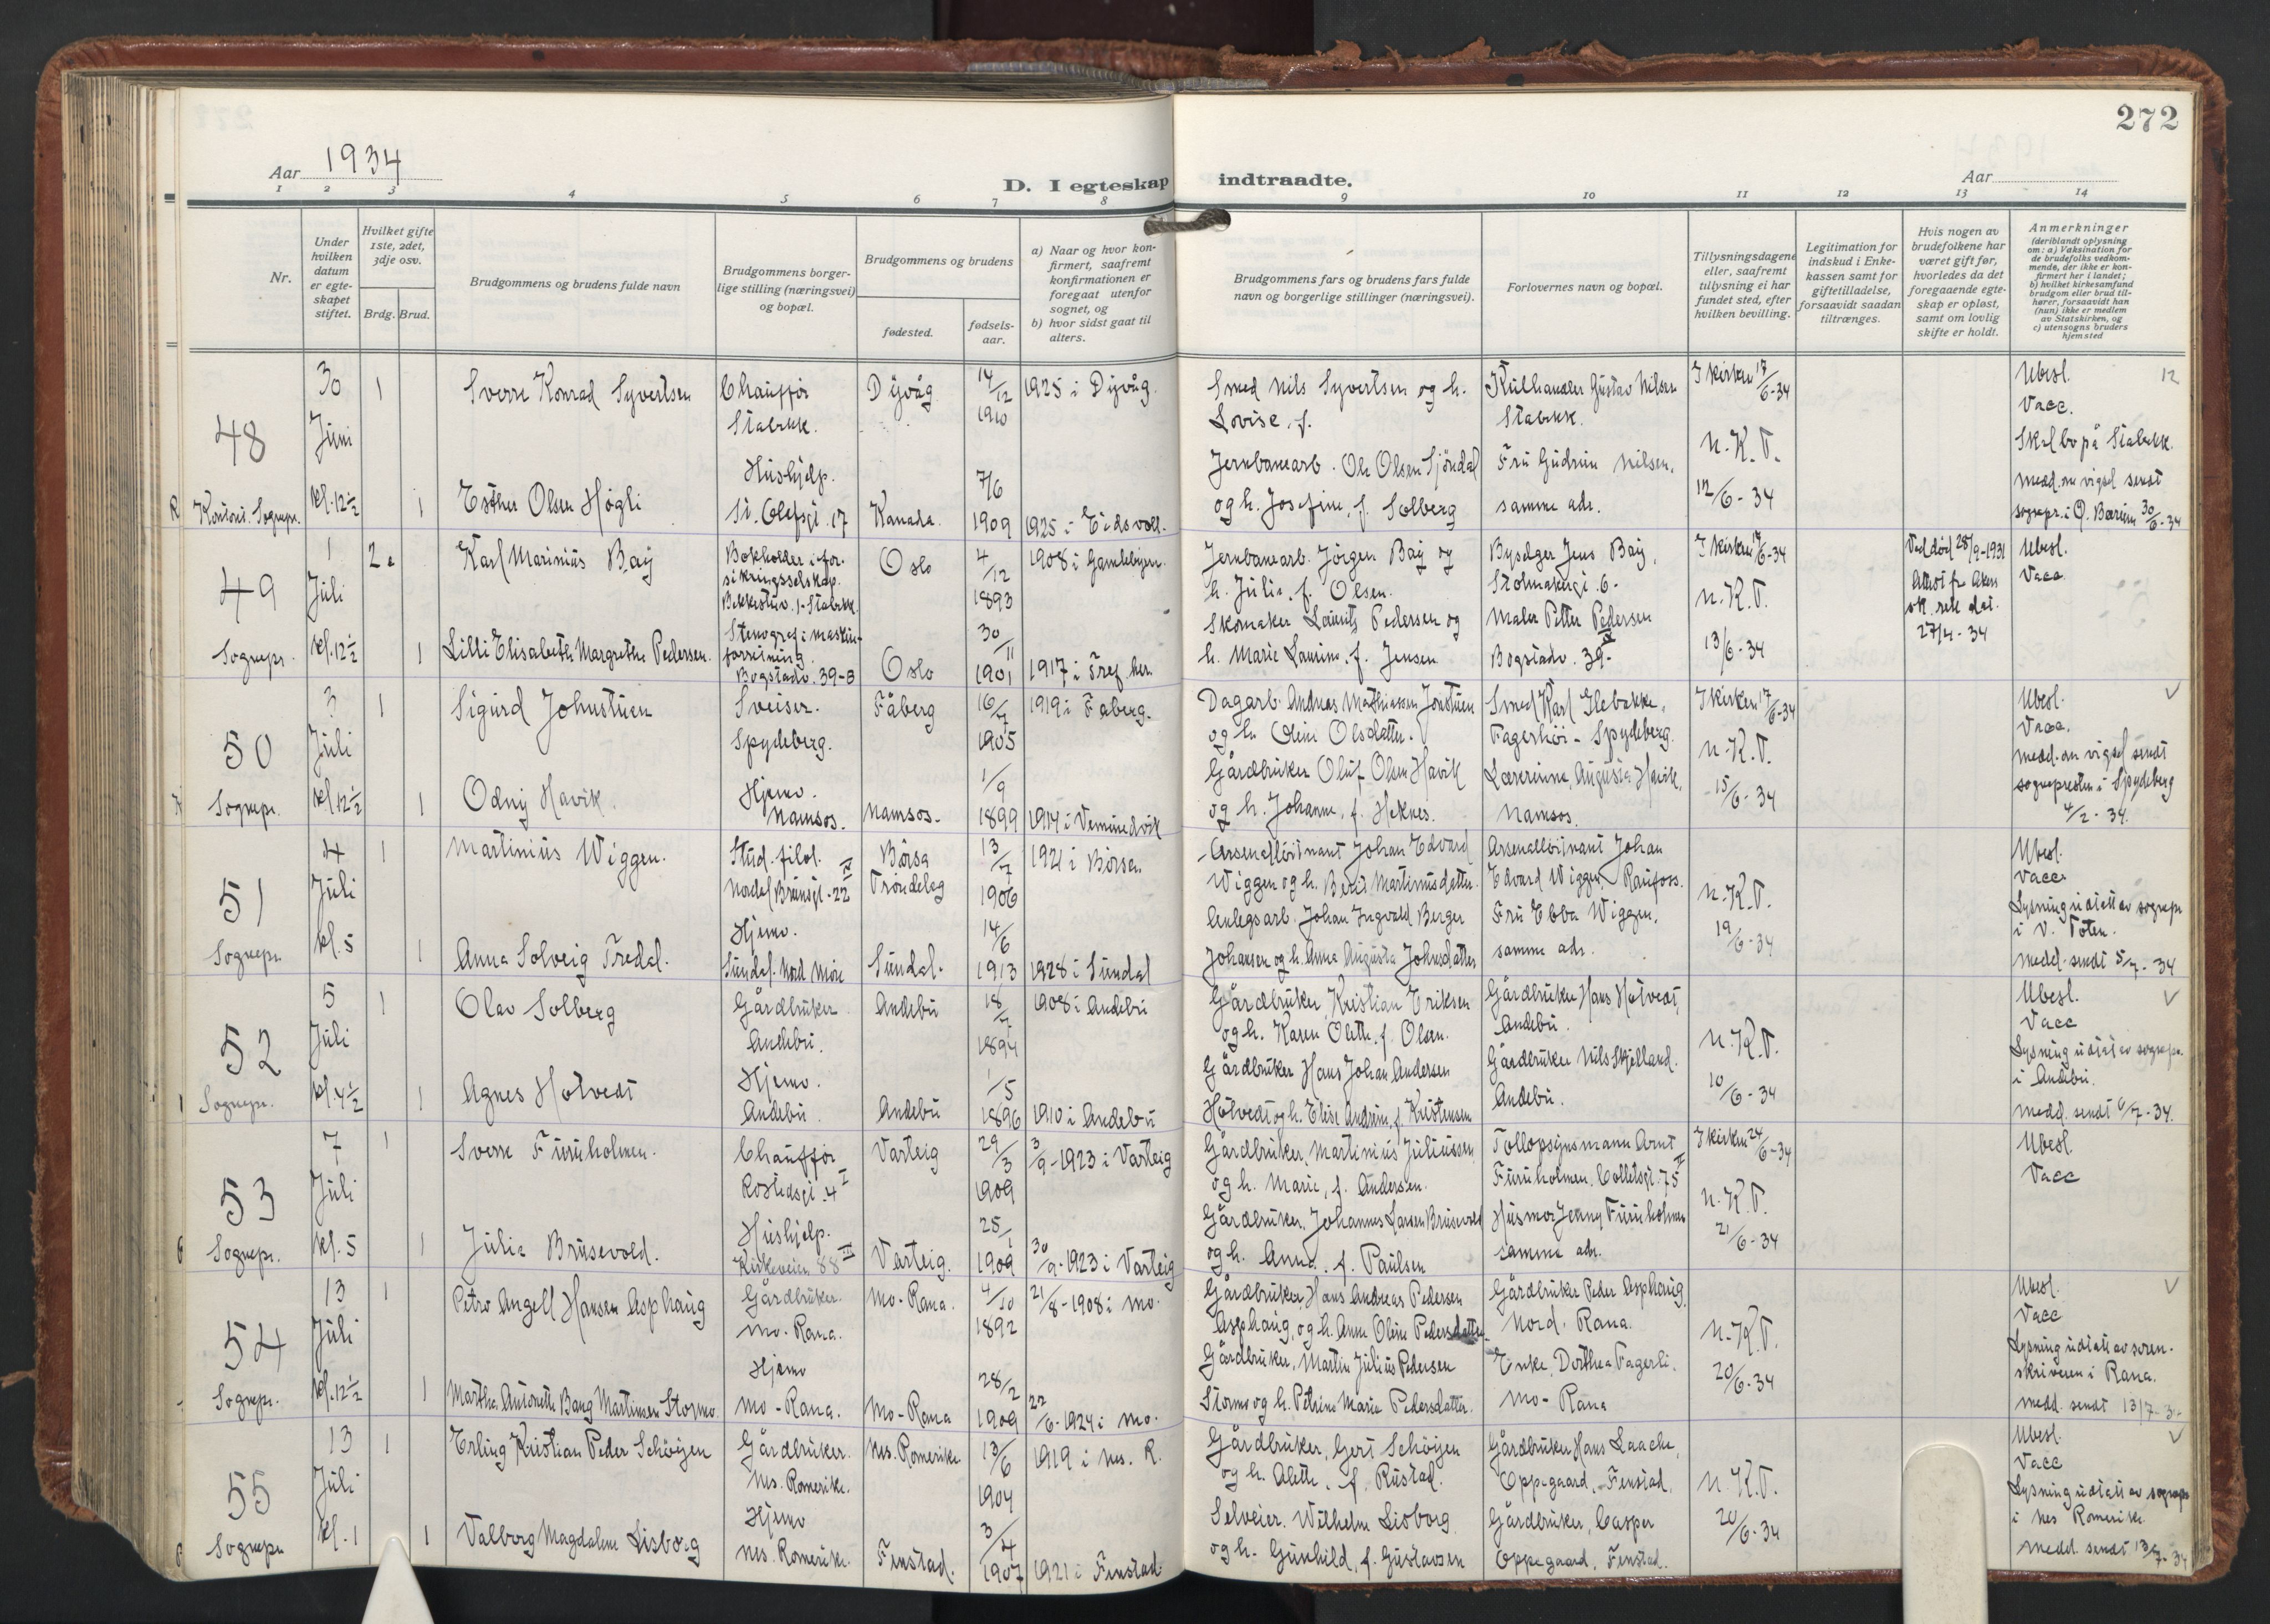 272
Aar 1934
D. I egteskap indtraadte.
Aar
1 2 3 4 5 6 7 8 9 10 11 12 13 14
Nr.
Under hvilken datum er egteskapet stiftet.
Hvilket gifte 1ste, 2det, 3dje osv.
Brdg. Brud.
Brudgommens og brudens fulde navn
Brudgommens borgerlige stilling (næringsvei) og bopæl.
Brudgommens og brudens
fødested.
fødsels-aar.
a) Naar og hvor konfirmert, saafremt konfirmationen er foregaat utenfor sognet, og
b) hvor sidst gaat til alters.
Brudgommens fars og brudens fars fulde navn og borgerlige stillinger (næringsvei).
Forlovernes navn og bopæl.
Tillysningsdagene eller, saafremt tillysning ei har fundet sted, efter hvilken bevilling.
Legitimation for indskud i Enkekassen samt for giftetilladelse, forsaavidt saadan tiltrænges.
Hvis nogen av brudefolkene har været gift før, hvorledes da det foregaaende egteskap er opløst, samt om lovlig skifte er holdt.
Anmerkninger
(deriblandt oplysning om: a) Vaksination for de brudefolks vedkommende, der ikke er konfirmert her i landet;
b) hvilket kirkesamfund brudgom eller brud tilhører, forsaavidt han (hun) ikke er medlem av Statskirken, og
c) utensogns bruders hjemsted
48
30 Juni kl. 12½
1 Sverre Konrad Syvertsen
Chauffør Stabekk.
Dyvåg 14/12 1910
1925 i Dyvåg.
Smed Nils Syvertsen og h. Lovise, f.
Kulhandler Gustav Nilsen Stabekk.
I kirken 17/6-34
N.K.T.
12/6-34
Ubesl.
Vacc.
Skal bo på Stabekk.
medd. om vigsel sendt
sognepr. i Ø. Bærum 30/6-34
1 Esther Olsen Høgli
Hushjelp. St. Olafsgt. 17
Kanada. 7/6 1909
1925 i Eidsvoll.
Jernbanearb. Ole Olsen Sjöndal og h. Josefine, f. Solberg
Fru Gudrun Nilsen, samme adr.
49
1 Juli kl. 12½
Sognepr.
2 e Karl Marinius Bay
Bokholder i forsikringsselskap. Bekkestuv. 1 - Stabekk.
Oslo 4/12 1893
1908 i Gamlebyen.
Jernbanearb. Jörgen Bay og h. Julie, f. Olsen.
Byselger Jens Bay, Stolmakergt. 6.
I kirken 17/6-34
N.K.T.
13/6-34
Ved död 28/9-1931
27/4-34
Ubesl.
Vacc.
1 Lilli Elisabeth Margrethe Pedersen.
Stenograf i maskinforretning. Bogstadv. 39-B
Oslo 30/11 1901
1917 i Tref. her.
Skomaker Laurits Pedersen og h. Marie Laurine, f. Jensen
Maler Petter Pedersen Bogstadv. 39
50
3 Juli kl 12½
Sognepr.
1 Sigurd Johnstuen
Sveiser. Spydeberg.
Fåberg 16/7 1905
1919 i Fåberg.
Dagarb. Andreas Mathiassen Jonstuen og h. Oline Olsdatter.
Smed Karl Glebakke, Fagerhöi - Spydeberg.
I kirken 17/6-34
N.K.T.
15/6-34
Ubesl.
Vacc.
medd. om vigsel sendt
sognepresten i Spydeberg
4/2-34.
1 Odny Havik.
Hjemv. Namsos.
Namsos. 1/9 1899
1914 i Vemundvik
Gårdbruker Oluf Olsen Havik og h. Johanne, f. Heknes.
Lærerinne, Augusta Havik, Namsos.
51
4 Juli kl. 5
Sognepr.
1 Martinius Wiggen.
Stud. filol. Nordal Brunsgt. 22 IV
Børsa Trøndelag 13/7 1906
1921 i Børsen.
Arsenalløitnant Johan Edvard Wiggen og h. Berit Martinusdatter.
Arsenalløitnant Johan Edvard Wiggen, Raufoss.
N.K.T.
19/6-34
Ubesl.
Vacc.
Lysning udstatt av sognepr.
i V. Toten.
medd. sendt 5/7-34
1 Anna Solveig Tredal.
Hjemv. Sundal. Nord Möre
Sundal. 14/6 1913
1928 i Sundal
Anlegsarb. Johan Ingvald Berger Johansen og h. Anna Augusta Johnsdatter
Fru Ebba Wiggen, samme adr.
52
5 Juli kl. 4½
Sognepr.
1 Olav Solberg
Gårdbruker Andebu.
Andebu 18/7 1894
1908 i Andebu
Gårdbruker, Kristian Eriksen og h. Karen Olette, f. Olsen.
Gårdbruker Hans Hotvedt, Andebu.
N.K.T.
10/6-34
Ubesl.
Vacc
Lysning udstat av sognepr.
i Andebu.
medd. sendt 6/7-34.
1 Agnes Hotvedt
Hjemv. Andebu
Andebu 1/5 1896
1910 i Andebu
Gårdbruker Hans Johan Andersen Hotvedt og h. Elise Andrine, f. Kristensen
Gårdbruker Nils Skjelland. Andebu.
53
7 Juli kl. 5
Sognepr.
1 Sverre Furuholmen.
Chauffør Rostedsgt. 4 I
Varteig 29/3 1909
3/9-1923 i Varteig
Gårdbruker, Martinius Juliussen og h. Marie, f. Andersen.
Tollopsynsmann Arnt Furuholmen, Colletsgt. 75 II
I kirken 24/6-34
N.K.T.
21/6-34
Ubesl.
Vacc
1 Julia Brusevold.
Hushjelp. Kirkeveien 88 III
Varteig. 25/1 1909
30/9-1923 i Varteig
Gårdbruker, Johannes Larsen Brusevold og h. Anna, f. Paulsen
Husmor Jenny Furuholmen samme adr.
54
13 Juli kl. 12½
Sognepr.
1 Petro Angell Hansen Asphaug
Gårdbruker. Mo-Rana.
Mo-Rana. 4/10 1892
21/8-1908 i Mo.
Gårdbruker, Hans Andreas Pedersen Asphaug, og h. Anne Oline Pedersdatter
Gårdbruker Peder Asphaug, Nord. Rana.
N.K.T.
20/6-34
Ubesl.
Vacc
Lysning udstatt av soren-
skriveren i Rana.
medd. sendt 13/7-3
1 Martha Antonette Bang Martinsen Stormo.
Hjemv Mo-Rana.
Mo-Rana 28/2 1909
22/6-1924 i Mo.
Gårdbruker, Martin Julius Pedersen Stormo og h. Petrine Marie Pedersdatter.
Enke, Dorthea Fagerli. Mo-Rana
55
13 Juli kl. 1
Sognepr
1 Erling Kristian Peder Schöijen
Gårdbruker. Nes. Romerike.
Nes. Romerike 13/6 1904
1919 i Nes. R.
Gårdbruker, Gert Schöijen og h. Alette, f. Rustad.
Gårdbruker Hans Laache, Oppegaard, Fenstad.
N.K.T.
20/6-34
Ubesl.
Vacc
Lysning udstatt av sognepr
i Nes Romerike
medd. sendt 13/7-34
1 Valborg Magdalene Lisborg
Hjemv Nes. Romerike.
Fenstad. 3/4 1907
1921 i Fenstad.
Selveier. Wilhelm Lisborg og h. Gunhild, f. Gustavsen
Gårdbruker, Casper Oppegaard, Fenstad.